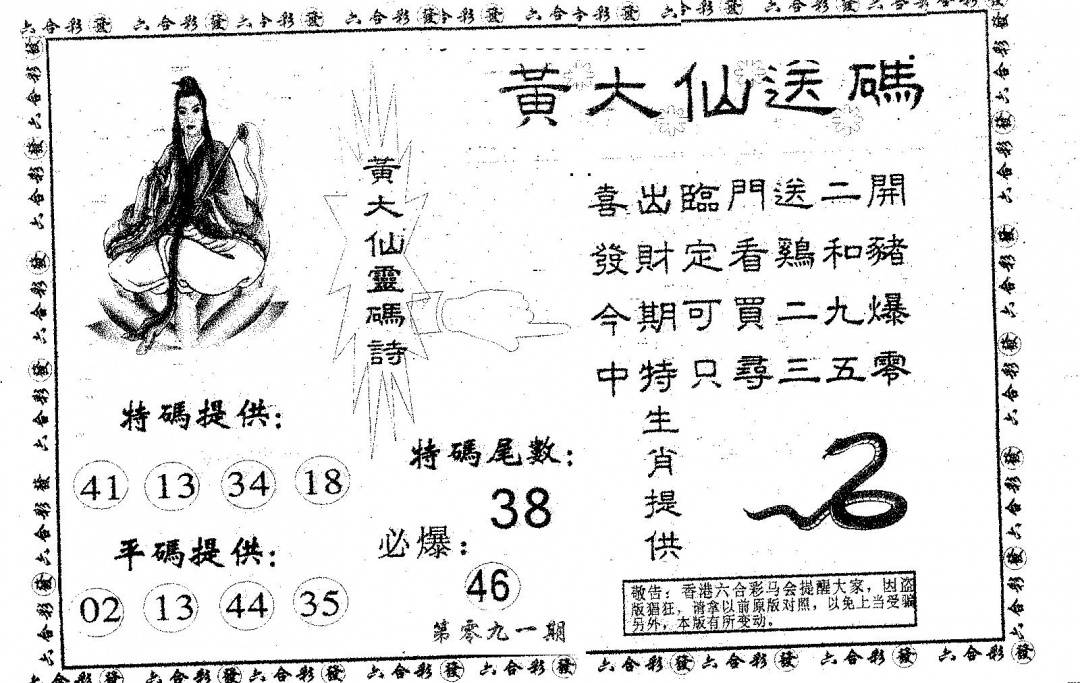 六合彩發 六合彩發 六合彩發 六合彩發 六合彩發 六合彩發
黃大仙送碼
黃大仙靈碼詩
喜出臨門送二開
發財定看鷄和豬
今期可買二九爆
中特只尋三五零
特碼提供:
41 13 34 18
平碼提供:
02 13 44 35
特碼尾數:
38
必爆:
46
第零九一期
生肖提供
敬告：香港六合彩马会提醒大家，因盗
版猖狂，请拿以前原版对照，以免上当受骗
另外，本版有所变动。
六合彩發 六合彩發 六合彩發 六合彩發 六合彩發 六合彩發 六合彩發 六合彩發